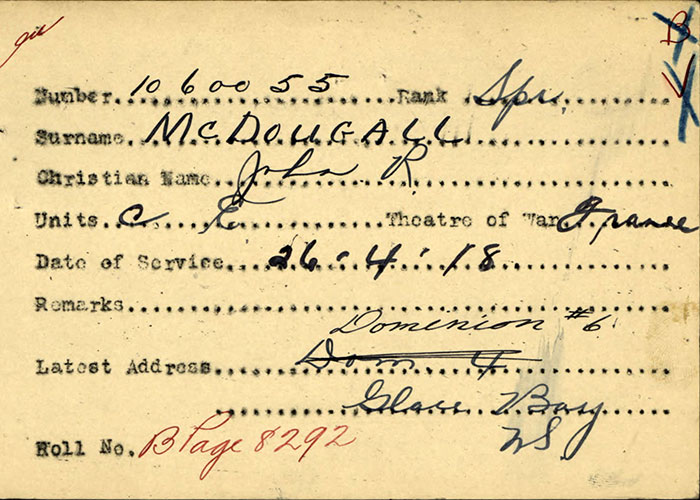 B
V
Number 1060055 Rank Spr.
Surname McDOUGALL
Christian Name John R.
Units C E Theatre of War France
Date of Service 26-4-18
Remarks
Dominion #6
Latest Address Dom 4
Glace Bay
NS.
Roll No. B Page 8292